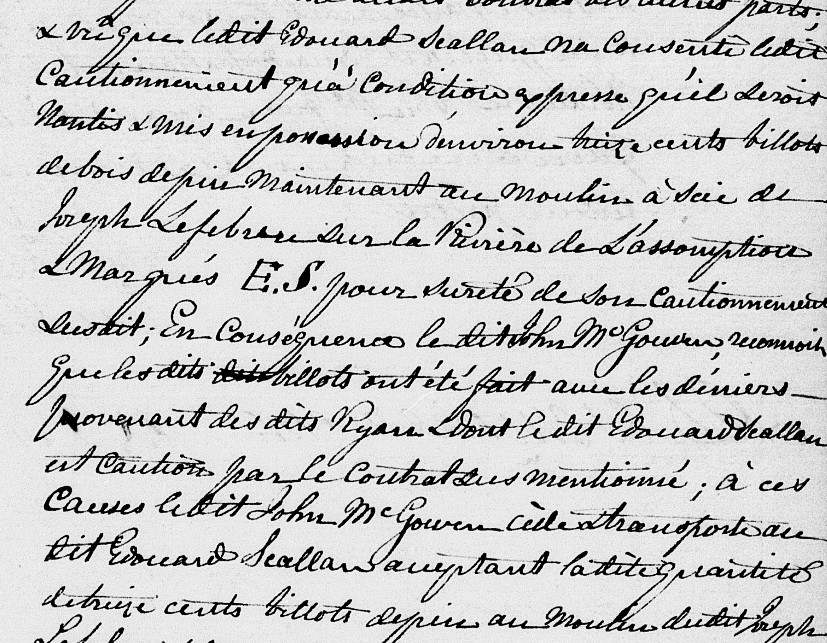 des autres parts;
& vû que ledit Edouard Scallan n'a Consenti ledit
Cautionnement qu'à Condition expresse qu'il seroit
Nantis & mis en possession d'environ treize cents billots
de bois de pin Maintenant au Moulin à Scie de
Joseph Lefebvre sur la Rivière de L'assomption
& Marqués E.S. pour sureté de son Cautionnement
Susdit; En Conséquence le dit John McGowen, reconnoit
que les dits dits billots ont été fait avec les déniers
provenant des dits Ryan & Dont le dit Edouard Scallan
est Caution par le Contrat sus mentionné; à ces
Causes le dit John McGowen cède & transporte au
dit Edouard Scallan acceptant la dite quantité
de treize cents billots de pin au Moulin du dit Joseph